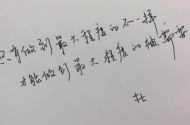 只有做到最大程度的不一样
才能做到最大程度的被需要